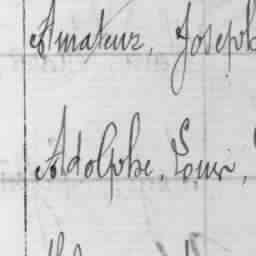 Amateur, Joseph
Adolphe, Louis,